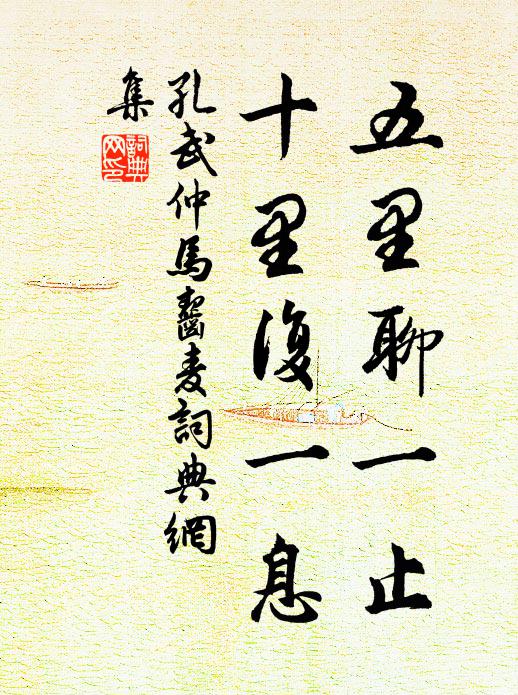 五里聊一止
十里復一息
孔武仲馬齧麦詞典網
集
詞典
网印